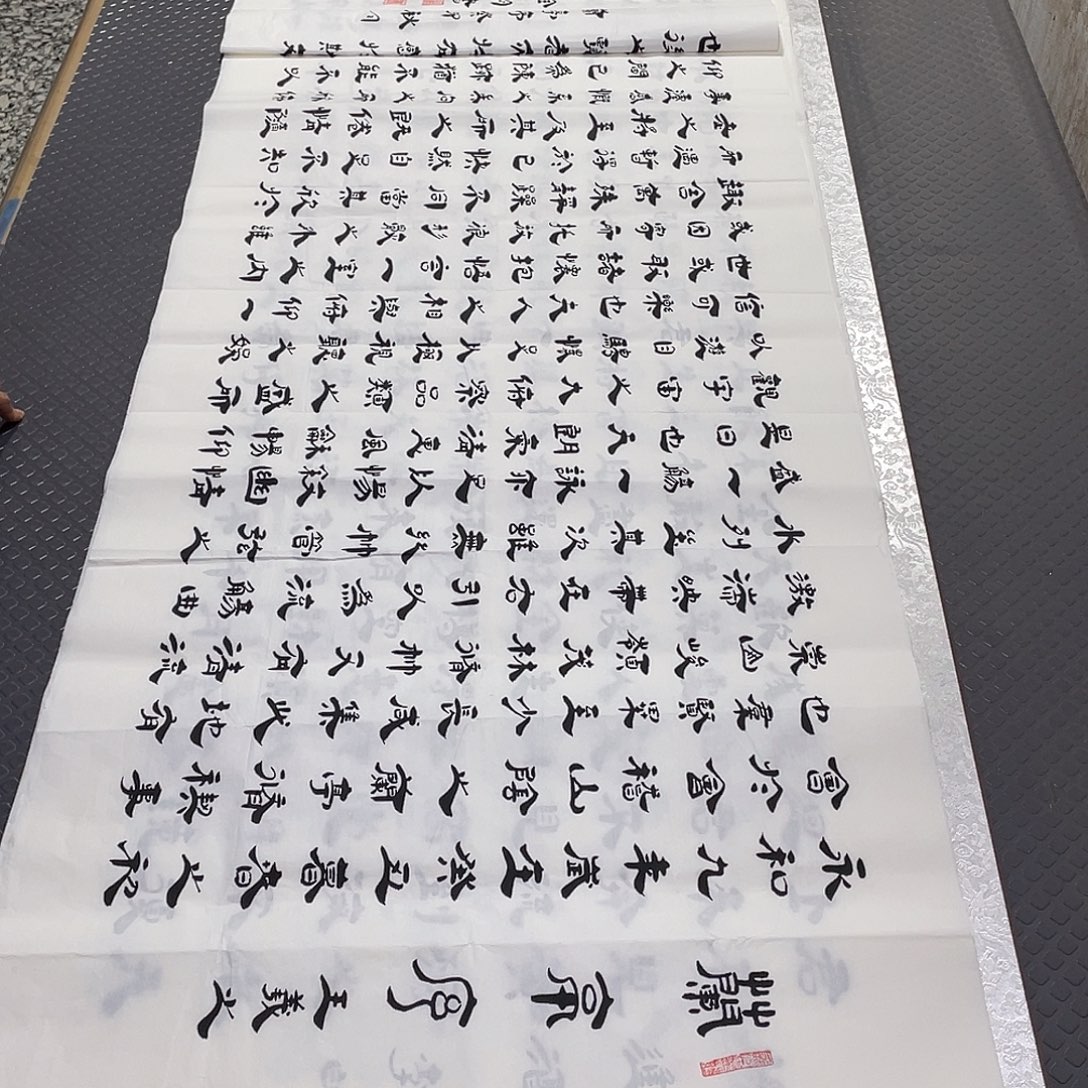 蘭亭序 王羲之
永和九年歲在癸丑暮春之初
會於會稽山陰之蘭亭脩禊事
也羣賢畢至少長咸集此地有
崇山峻領茂林脩竹又有清流
激湍映帶左右引以為流觴曲
水列坐其次雖無絲竹管弦之
盛一觴一詠亦足以暢敘幽情
是日也天朗氣清惠風和暢仰
觀宇宙之大俯察品類之盛所
以遊目騁懷足以極視聽之娛
信可樂也夫人之相與俯仰一
世或取諸懷抱悟言一室之內
或因寄所託放浪形骸之外雖
趣舍萬殊靜躁不同當其欣於
所遇暫得於己怏然自足不知
老之將至及其所之既倦情隨
事遷感慨係之矣向之所欣俛
仰之閒已為陳跡猶不能不以
也後之覽者亦將有感於斯文